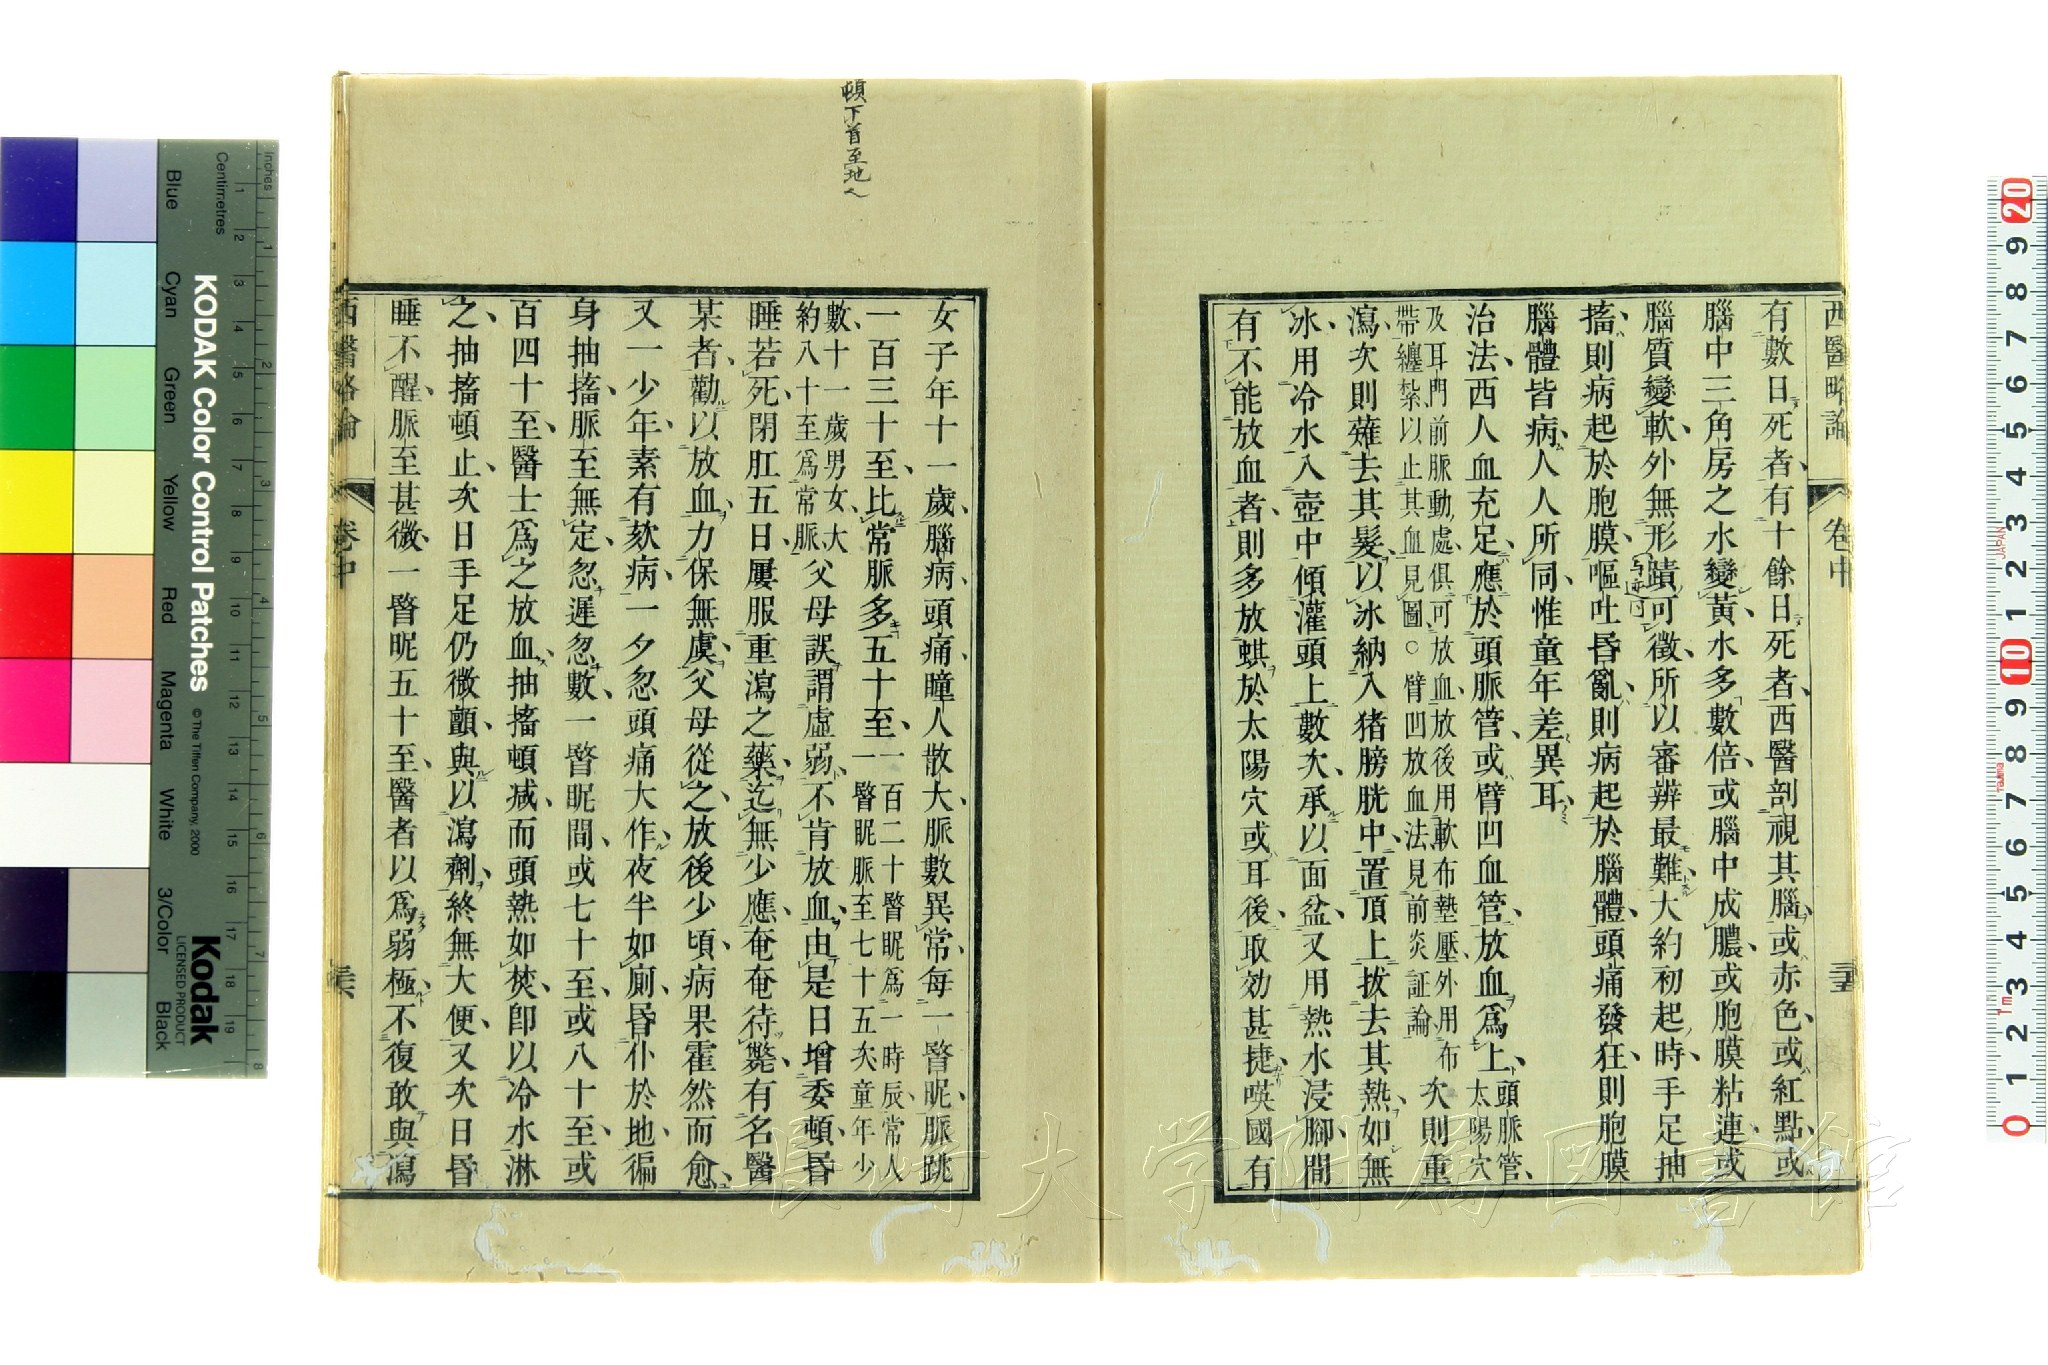 西醫略論
卷中
三五
有數日死者、有十餘日死者、西醫剖視其腦、或赤色、或紅點、或
腦中三角房之水變黃、水多數倍、或腦中成膿、或胞膜粘連、或
腦質變軟、外無形蹟可徵、所以審辨最難、大約初起時、手足抽
搐、則病起於胞膜、嘔吐昏亂、則病起於腦體、頭痛發狂、則胞膜
腦體皆病、人人所同、惟童年差異耳、
治法、西人血充足、應於頭脈管、或臂凹血管、放血爲上、頭脈管、太陽穴
及耳門前脈動處、俱可放血、放後用軟布墊壓、外用布
帶纏紮、以止其血見圖○臂凹放血法見前炎証論
次則重
瀉、次則薙去其髮、以冰納入猪膀胱中、置頂上拔去其熱、如無
冰、用冷水入壺中傾灌頭上數次、承以面盆、又用熱水浸腳、間
有不能放血者、則多放蜞於太陽穴或耳後、取効甚捷、嘆國有
頓下首至地也
女子年十一歲、腦病頭痛、瞳人散大、脈數異常、每一瞥眤、脈跳
一百三十至、比常脈多五十至、一百二十瞥眤爲一時辰、常人
一瞥眤脈至七十五次童年少
數、十一歲男女、大
約八十至爲常脈
父母誤謂虛弱、不肯放血、由是日增委頓、昏
睡若死、閉肛五日、屢服重瀉之藥、迄無少應、奄奄待斃、有名醫
某者、勸以放血、力保無虞、父母從之、放後少頃、病果霍然而愈、
又一少年、素有欬病、一夕忽頭痛大作、夜半如廁、昏仆於地、徧
身抽搐、脈至無定、忽遲忽數、一瞥眤間、或七十至、或八十至、或
百四十至、醫士爲之放血、抽搐頓减、而頭熱如焚、卽以冷水淋
之、抽搐頓止、次日手足仍微顫、與以瀉劑、終無大便、又次日昏
睡不醒、脈至甚微、一瞥眤五十至、醫者以爲弱極、不復敢與瀉
西醫略論
卷中
三六
KODAK Color Control Patches
© The Tiffen Company, 2000
Kodak
LICENSED PRODUCT
Inches
Centimetres
Blue
Cyan
Green
Yellow
Red
Magenta
White
3/Color
Black
長崎大学附属図書館